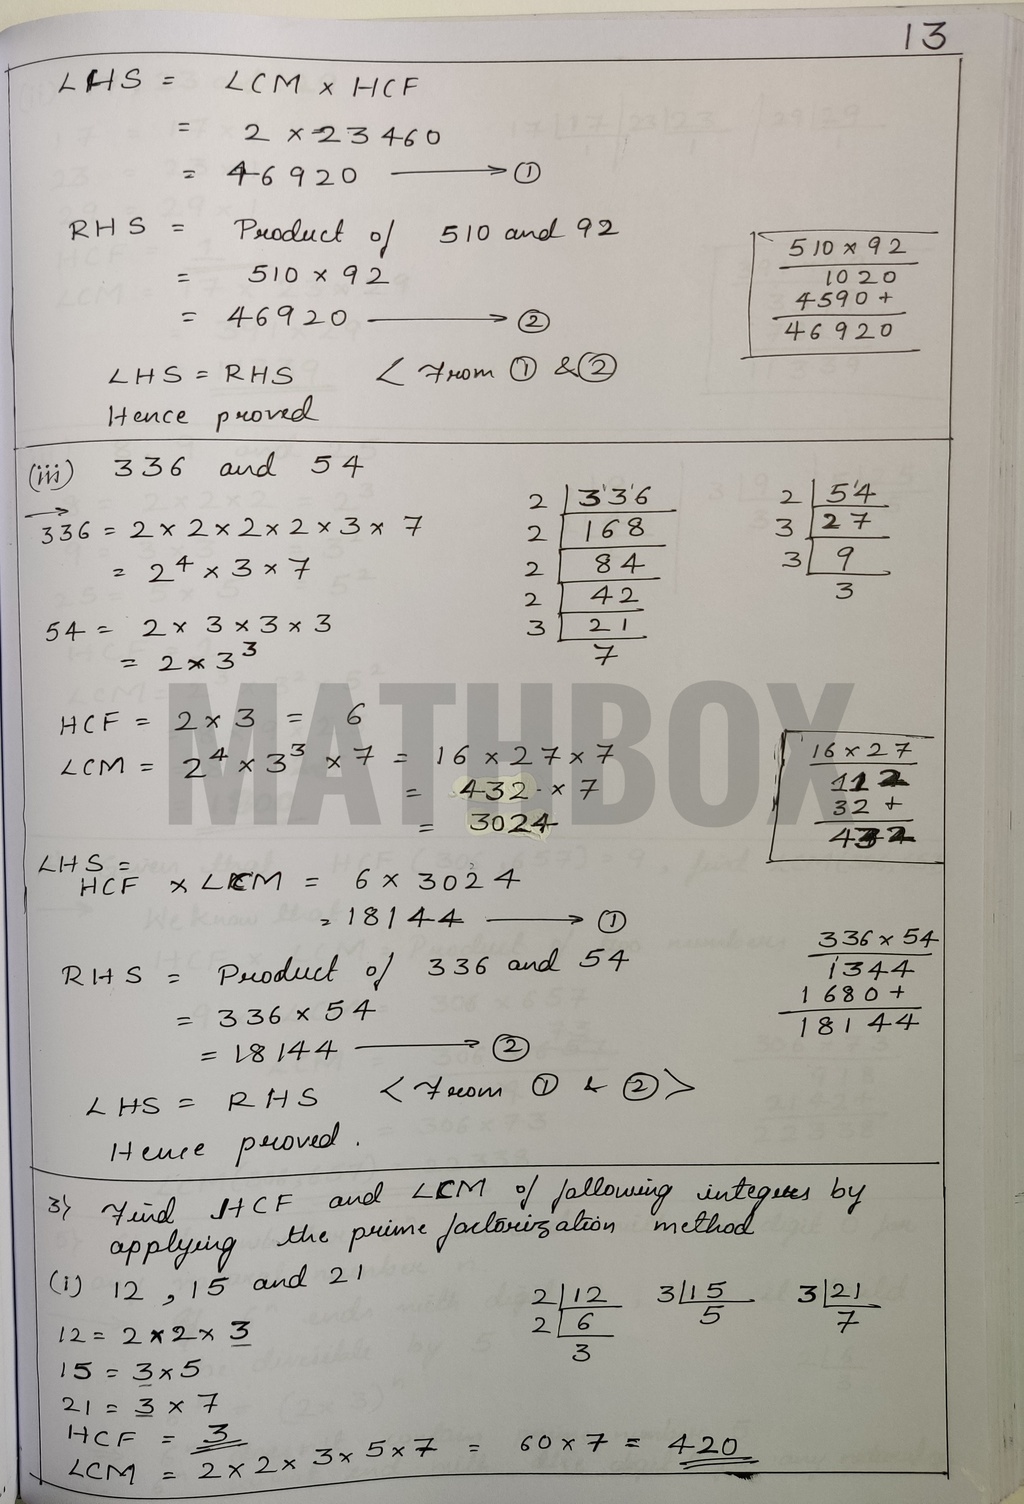 13
LHS = LCM × HCF
= 2 × 23460
= 46920 ⟶ ①
RHS = Product of 510 and 92
= 510 × 92
= 46920 ⟶ ②
510 × 92
1020
4590 +
46920
LHS = RHS < From ① & ②
Hence proved
(iii) 336 and 54
→
336 = 2 × 2 × 2 × 2 × 3 × 7
= 2⁴ × 3 × 7
54 = 2 × 3 × 3 × 3
= 2 × 3³
2 | 336
2 | 168
2 | 84
2 | 42
3 | 21
7
2 | 54
3 | 27
3 | 9
3
HCF = 2 × 3 = 6
LCM = 2⁴ × 3³ × 7 = 16 × 27 × 7
= 432 × 7
= 3024
16 × 27
112
32 +
432
MATHBOX
LHS =
HCF × LCM = 6 × 3024
= 18144 ⟶ ①
RHS = Product of 336 and 54
= 336 × 54
= 18144 ⟶ ②
336 × 54
1344
1680 +
18144
LHS = RHS < From ① & ② >
Hence proved.
3) Find HCF and LCM of following integers by
applying the prime factorization method
(i) 12, 15 and 21
12 = 2 × 2 × 3
15 = 3 × 5
21 = 3 × 7
2 | 12
2 | 6
3
3 | 15
5
3 | 21
7
HCF = 3
LCM = 2 × 2 × 3 × 5 × 7 = 60 × 7 = 420